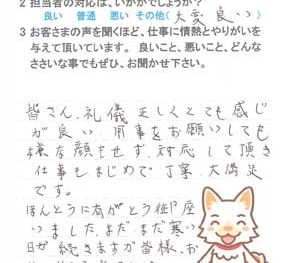 2 担当者の対応は、いかがでしょうか？
良い 普通 悪い その他(大変良い)
3 お客さまの声を聞くほど、仕事に情熱とやりがいを
与えて頂いています。 良いこと、悪いこと、どんな
ささいな事でもぜひ、お聞かせ下さい。
皆さん、礼儀正しくとても感じ
が良い、用事をお願いしても
嫌な顔をせず、対応して頂き
仕事もまじめで丁寧、大満足
です。
ほんとうに有がとう御座
いました、まだまだ寒い
日が続きますが皆様、お